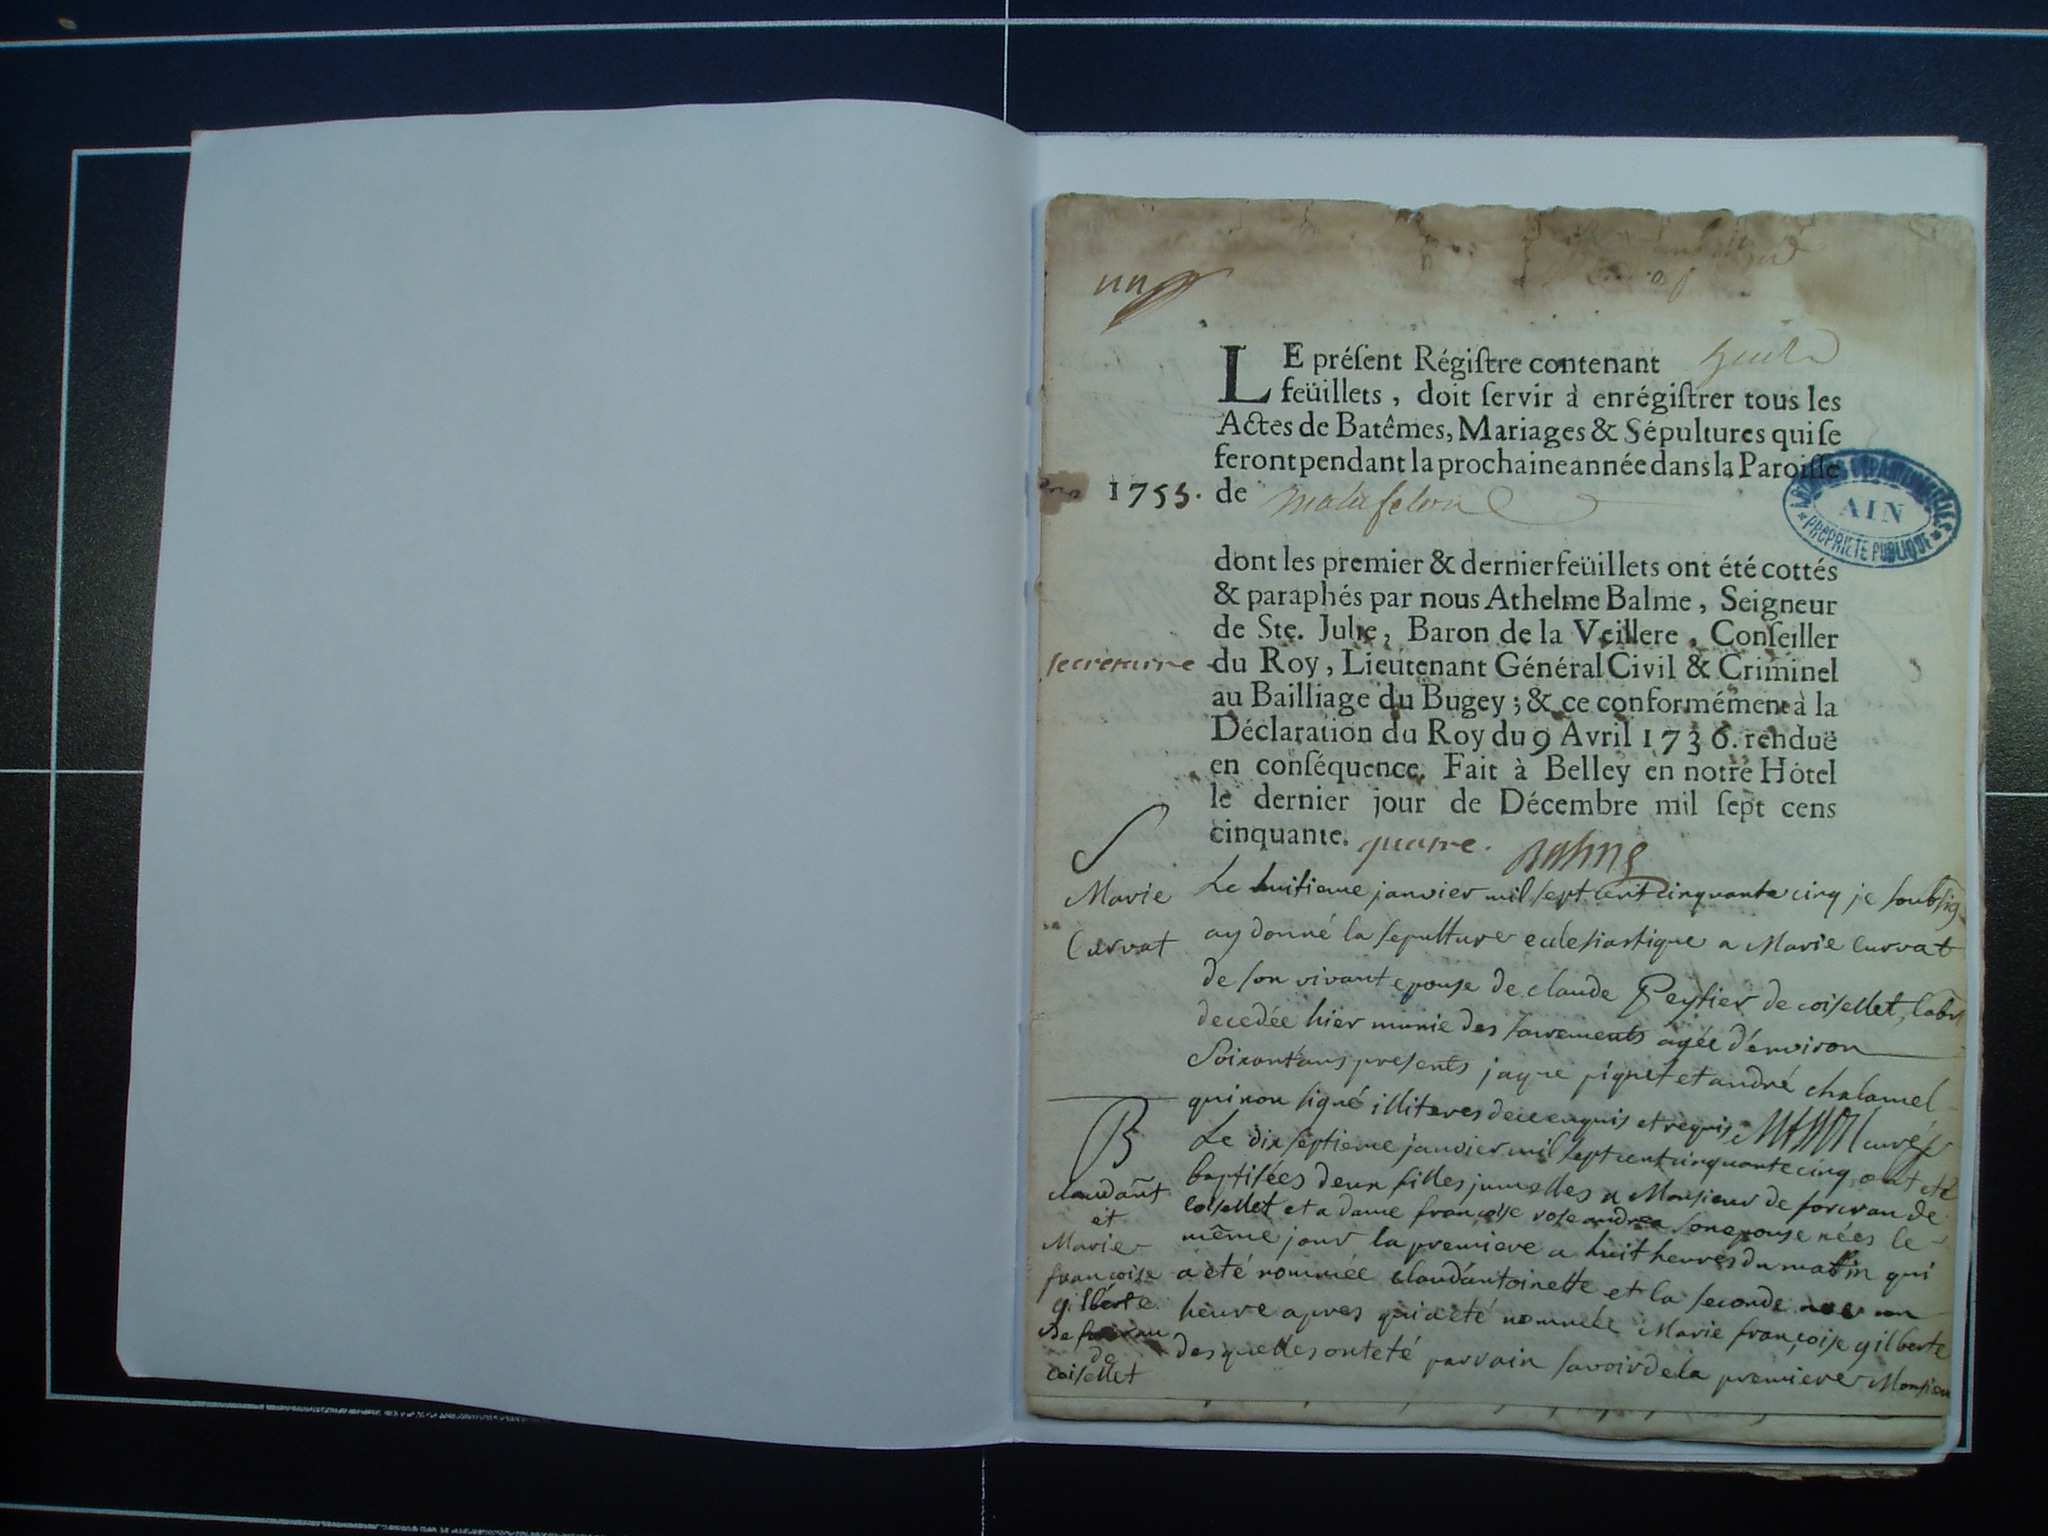 LE préſent Régiſtre contenant huit
feüillets, doit ſervir à enrégiſtrer tous les
Actes de Batêmes, Mariages & Sépultures qui ſe
feront pendant la prochaine année dans la Paroiſſe
1755. de matafelon
ARCHIVES DÉPARTEMENTALES
AIN
* PROPRIÉTÉ PUBLIQUE *
dont les premier & dernier feüillets ont été cottés
& paraphés par nous Athelme Balme, Seigneur
de Ste. Julie, Baron de la Veillere, Conſeiller
secretaire du Roy, Lieutenant Général Civil & Criminel
au Bailliage du Bugey; & ce conformément à la
Déclaration du Roy du 9 Avril 1736. renduë
en conſéquence. Fait à Belley en notre Hôtel
le dernier jour de Décembre mil ſept cens
cinquante. quatre. Balme
S
Marie
Curvat
Le huitieme janvier mil sept cent cinquante cinq je soubsig
ay donné la sepulture eclesiastique a Marie Curvat
de son vivant epouse de claude Peysier de coisellet, labr
decedée hier munie des sacrements agée d'environ
Soixant'ans presents jaque piquet et andré chalamel
qui non signé illiteres de ce enquis et requis curé
B
claudānt
et
Marie
françoise
gilberte
de forcrau
de
coisellet
Le dix septieme janvier mil sept cent cinquante cinq ont eté
baptisées deux filles jumelles a Monsieur de forcrau de
coisellet et a dame françoise rose andrea son epouse nées le
même jour la premiere a huit heures du matin qui
a eté nommée claud'antoinette et la seconde nee un
heure apres qui a eté nommée Marie françoise gilberte
desquelles ont eté parrain savoir de la premiere Monsieu